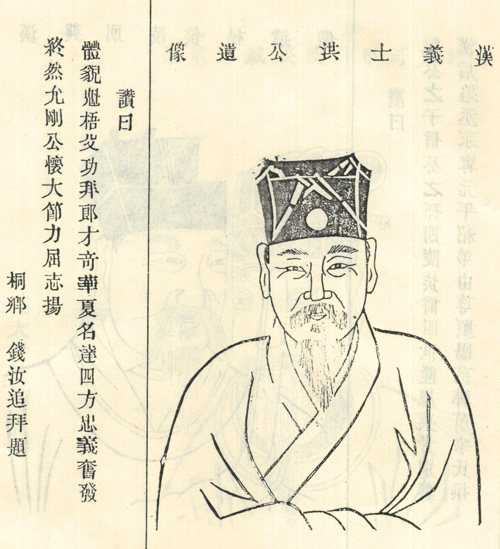 漢義士洪公遺像
讚曰
體貌魁梧功拜郎才奇華夏名達四方忠義奮發
終然允剛公懷大節力屈志揚
桐鄉 錢汝追拜題